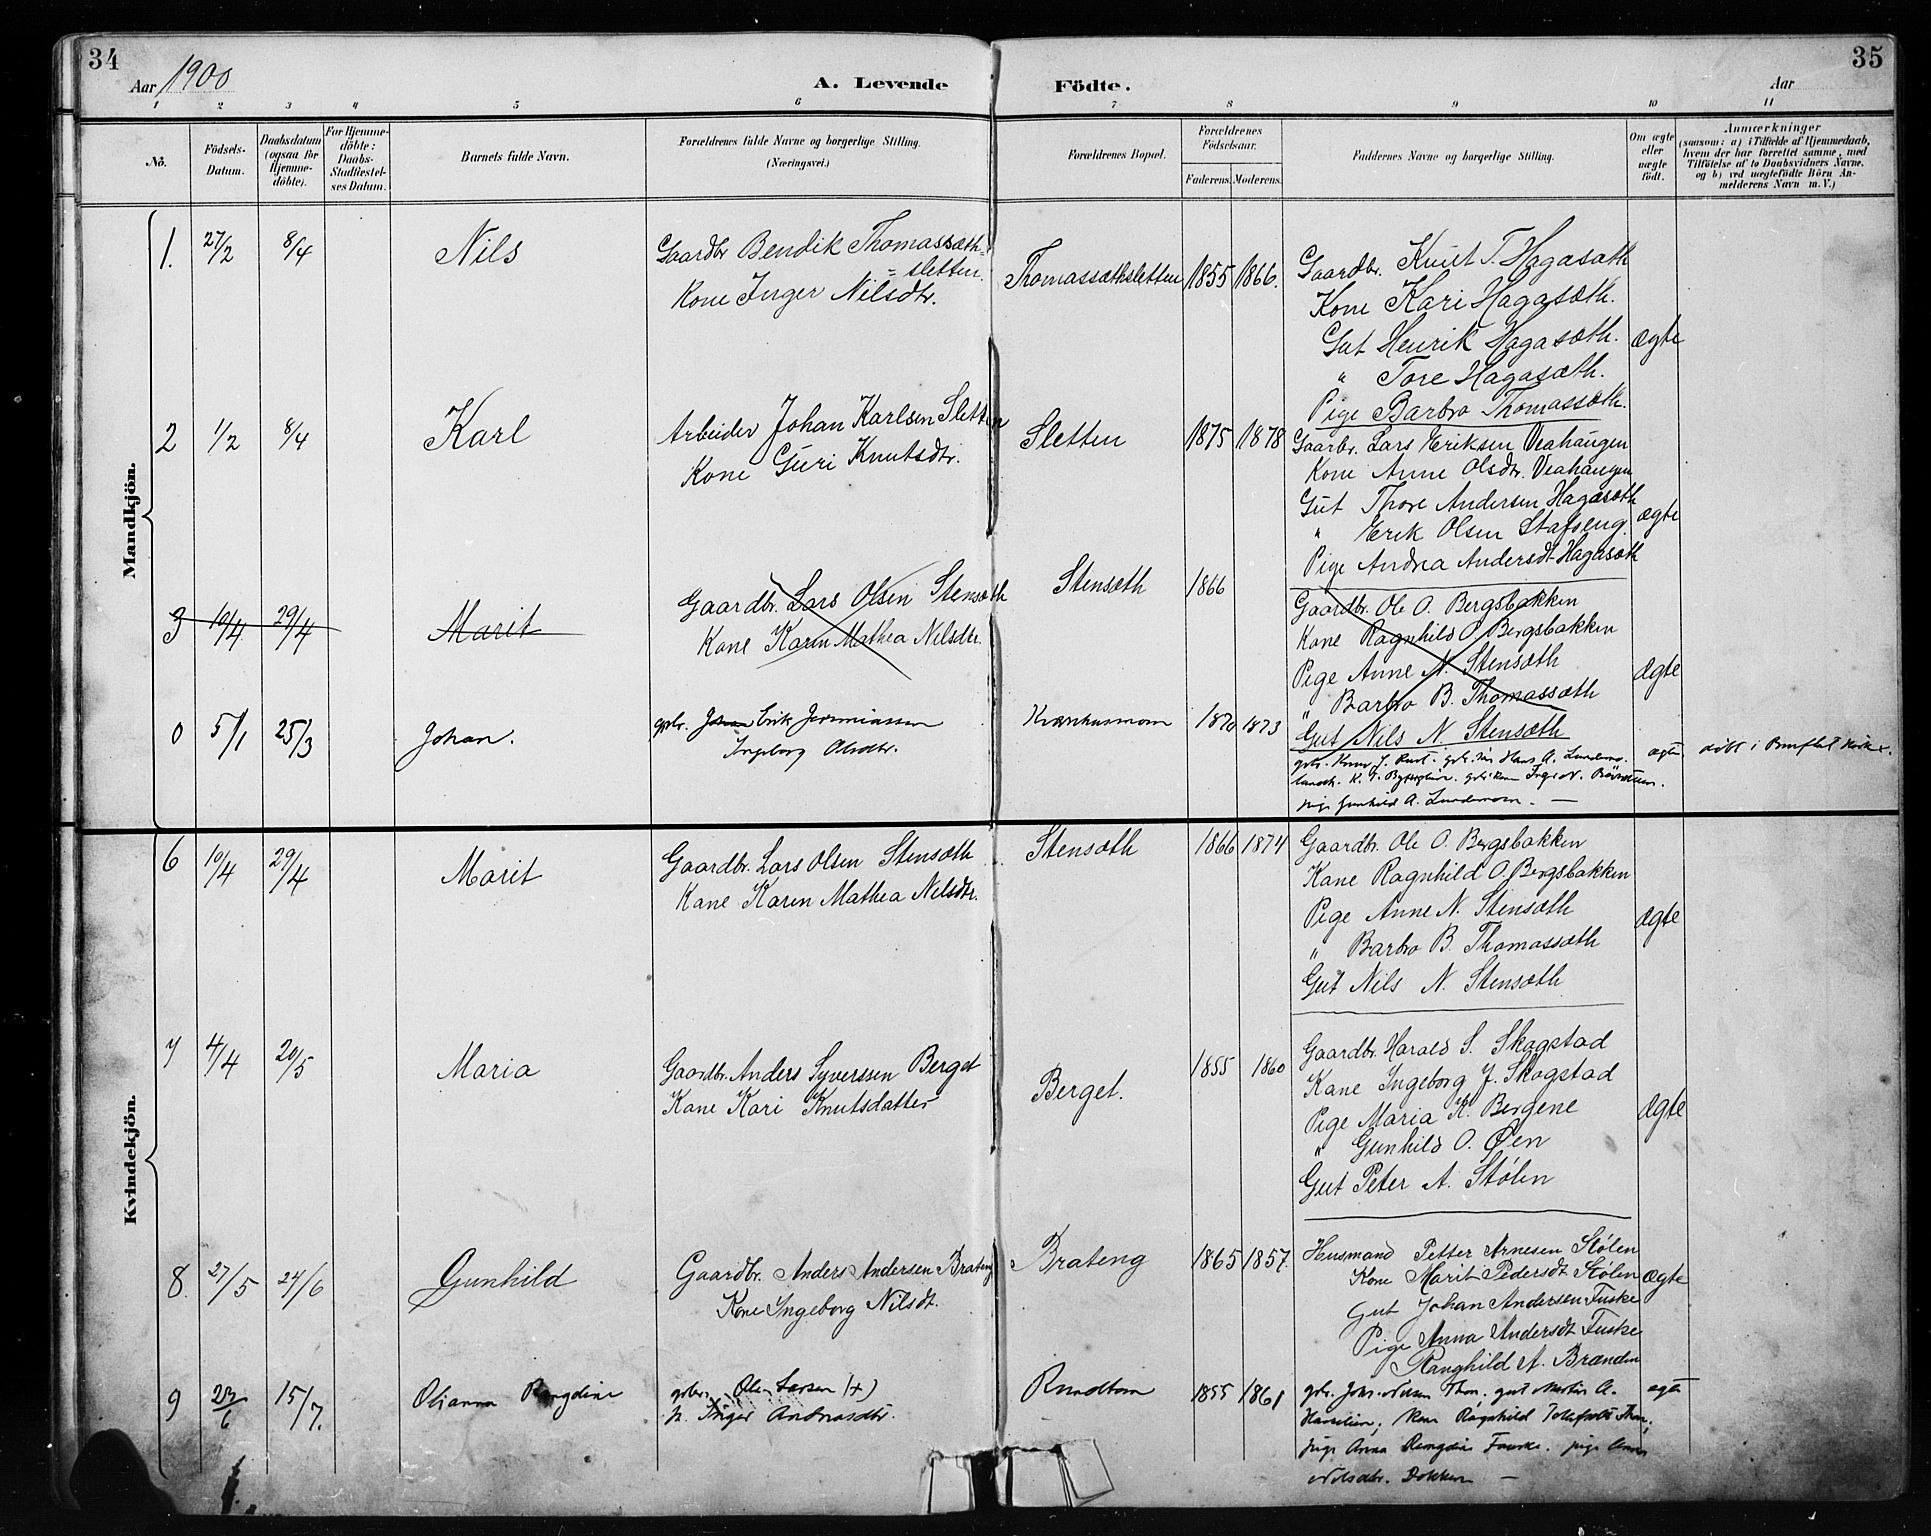 34
Aar 1900
A. Levende Födte.
Aar
35
1 2 3 4 5 6 7 8 9 10 11
No.
Födsels-Datum.
Daabsdatum (ogsaa for Hjemme-döbte).
For Hjemme-döbte: Daabs-Stadfæstel-ses Datum.
Barnets fulde Navn.
Forældrenes fulde Navne og borgerlige Stilling.
(Næringsvei.)
Forældrenes Bopæl.
Forældrenes Födselsaar.
Faderens. Moderens.
Faddernes Navne og borgerlige Stilling.
Om ægte eller uægte födt.
Anmærkninger
(saasom: a) i Tilfælde af Hjemmedaab, hvem der har forrettet samme, med Tilföielse af to Daabsvidners Navne, og b) ved uægtefödte Börn An-melderens Navn m. V.)
Mandkjön.
1. 27/2 8/4 Nils
Gaardbr Bendik Thomassæth=
=sletten.
Kone Inger Nilsdtr.
Thomassæthsletten 1855 1866.
Gaardbr. Knut T. Hagasæth
Kone Kari Hagasæth.
Gut Henrik Hagasæth. Ægte
" Tore Hagasæth.
Pige Barbro Thomassæth.
2 1/2 8/4 Karl
Arbeider Johan Karlsen Sletten
Kone Guri Knutsdtr.
Sletten 1875 1878
Gaarbr. Lars Eriksen Veahaugen
Kone Anne Olsdtr. Veahaugen
Gut Thore Andersen Hagasæth
" Erik Olsen Stafseng. Ægte
Pige Andrea Andersdt Hagasæth
3 10/4 29/4 Marit
Gaardbr. Lars Olsen Stensæth
Kone Karen Mathea Nilsdtr.
Stensæth 1866
Gaardbr. Ole O. Bergsbakken
Kone Ragnhild O. Bergsbakken
Pige Anne N. Stensæth Ægte
" Barbro B. Thomassæth
Gut Nils N. Stensæth
0 5/1 25/3 Johan.
gbr. Johan Erik Jeremiassen
Ingeborg Olsdtr.
Kværnhusmoen 1870 1873
ægte døbt i Bruflat Kirke.
pige Gunhild A. Lundemoen. —
Kvindekjön.
6 10/4 29/4 Marit
Gaardbr. Lars Olsen Stensæth
Kone Karen Mathea Nelsdtr.
Stensæth 1866 1874
Gaardbr. Ole O. Bergsbakken
Kone Ragnhild O. Bergsbakken
Pige Anne N. Stensæth Ægte
" Barbro B. Thomassæth
Gut Nils N. Stensæth
7 4/4 20/5 Maria
Gaardbr. Anders Syverssen Berget
Kone Kari Knutsdatter
Berget. 1855 1860
Gaardbr. Harald S. Skogstad
Kone Ingeborg J. Skogstad
Pige Maria K. Bergene Ægte
" Gunhild O. Øen
Gut Peter A. Stølen
8. 27/5 24/6 Gunhild
Gaardbr. Anders Andersen Brateng
Kone Ingeborg Nilsdt.
Brateng 1865 1857.
Husmand Petter Arnesen Stølen
Kone Marit Pedersdt Stølen Ægte
Gut Johan Andersen Fuske
Pige Anna Andersdt Fuske
Ranghild A. Brænden
9 15/7. Olianna Rangdine
gbr. Ole Larsen (+)
h. Inger Andreasdtr.
Rundtom 1855 1861
ægte
Nilsdtr. Dokken —